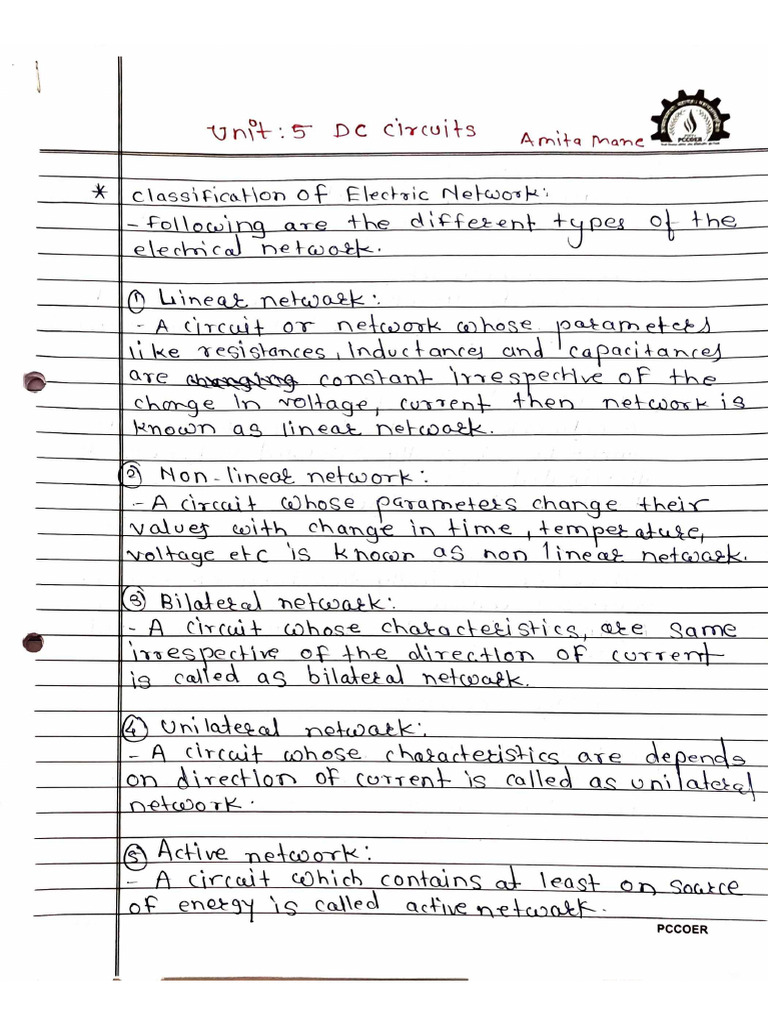 Unit : 5 DC Circuits Amita Mane
PCCOER
* Classification of Electric Network:
- Following are the different types of the
electrical network.
① Linear network:
- A circuit or network whose parameters
like resistances, Inductances and capacitances
are changing constant irrespective of the
change in voltage, current then network is
known as linear network.
② Non-linear network:
- A circuit whose parameters change their
values with change in time, temperature,
voltage etc is known as non linear network.
③ Bilateral network:
- A circuit whose characteristics, are same
irrespective of the direction of current
is called as bilateral network.
④ Unilateral network:
- A circuit whose characteristics are depends
on direction of current is called as unilateral
network.
⑤ Active network:
- A circuit which contains at least on source
of energy is called active network.
PCCOER